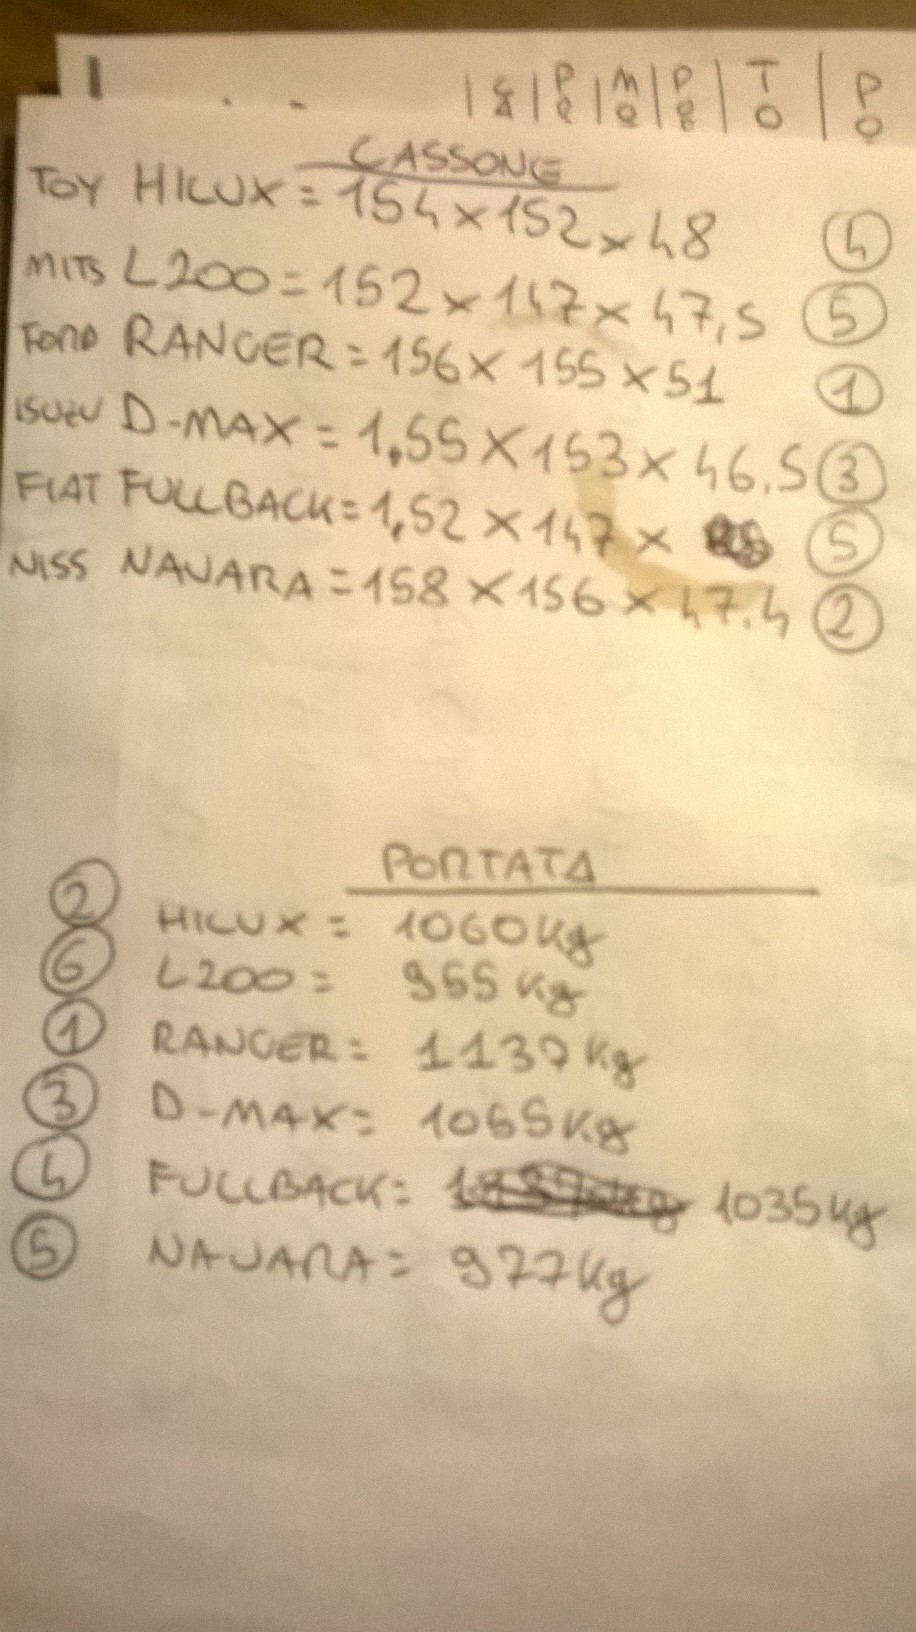 CASSONE
TOY HILUX = 154 x 152 x 48 4
MITS L200 = 152 x 147 x 47,5 5
FORD RANGER = 156 x 155 x 51 1
ISUZU D-MAX = 1,55 x 153 x 46,5 3
FIAT FULLBACK = 1,52 x 147 x 5
NISS NAVARA = 158 x 156 x 47.4 2
PORTATA
2 HILUX = 1060 Kg
6 L200 = 955 Kg
1 RANGER = 1139 Kg
3 D-MAX = 1065 Kg
4 FULLBACK = 1035 Kg
5 NAVARA = 977 Kg